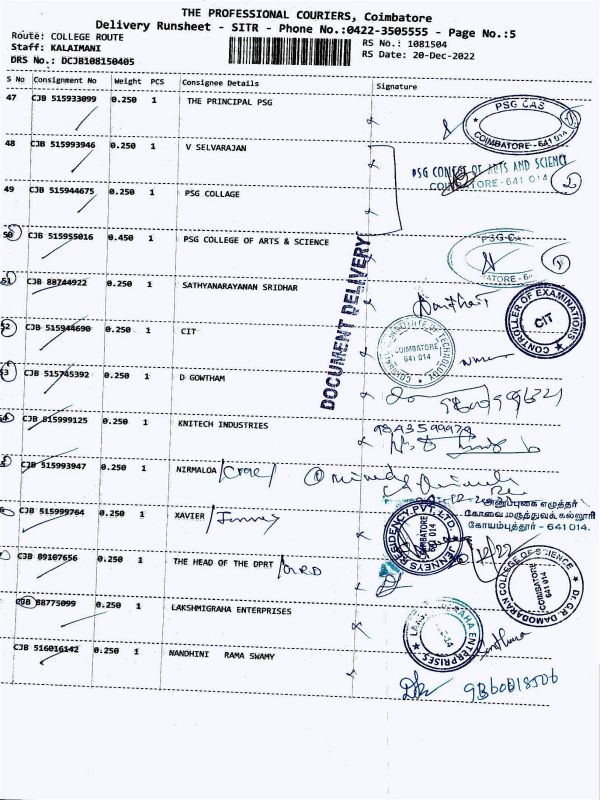 THE PROFESSIONAL COURIERS, Coimbatore
Delivery Runsheet - SITR - Phone No.:0422-3505555 - Page No.:5
Route: COLLEGE ROUTE
Staff: KALAIMANI
DRS No.: DCJB108150405
RS No.: 1081504
RS Date: 20-Dec-2022
S No Consignment No Weight PCS Consignee Details Signature
47 CJB 515933099 0.250 1 THE PRINCIPAL PSG
PSG CAS
COIMBATORE - 641 014
48 CJB 515993946 0.250 1 V SELVARAJAN
PSG COLLEGE OF ARTS AND SCIENCE
COIMBATORE - 641 014
49 CJB 515944675 0.250 1 PSG COLLAGE
50 CJB 515955016 0.450 1 PSG COLLEGE OF ARTS & SCIENCE
DOCUMENT DELIVERY
51 CJB 88744922 0.250 1 SATHYANARAYANAN SRIDHAR
CONTROLLER OF EXAMINATIONS
CIT
52 CJB 515944690 0.250 1 CIT
COIMBATORE
641 014
53 CJB 515745392 0.250 1 D GOWTHAM
54 CJB 515999125 0.250 1 KNITECH INDUSTRIES
CJB 515993947 0.250 1 NIRMALOA
CJB 515999764 0.250 1 XAVIER
JENNEYS RESIDENCY PVT. LTD.
COIMBATORE
641 014
அனுப்புகை எழுத்தர்
கோவை மருத்துவக் கல்லூரி
கோயம்புத்தூர் - 641 014.
CJB 89107656 0.250 1 THE HEAD OF THE DPRT
Dr. G.R. DAMODARAN COLLEGE OF SCIENCE
COIMBATORE
641 014
CJB 88775099 0.250 1 LAKSHMIGRAHA ENTERPRISES
CJB 516016142 0.250 1 NANDHINI RAMA SWAMY